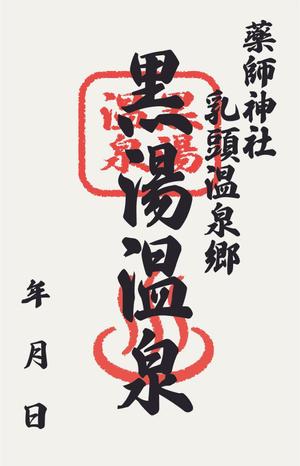 薬師神社
乳頭温泉郷
黒湯温泉
黒湯
温泉
年 月 日